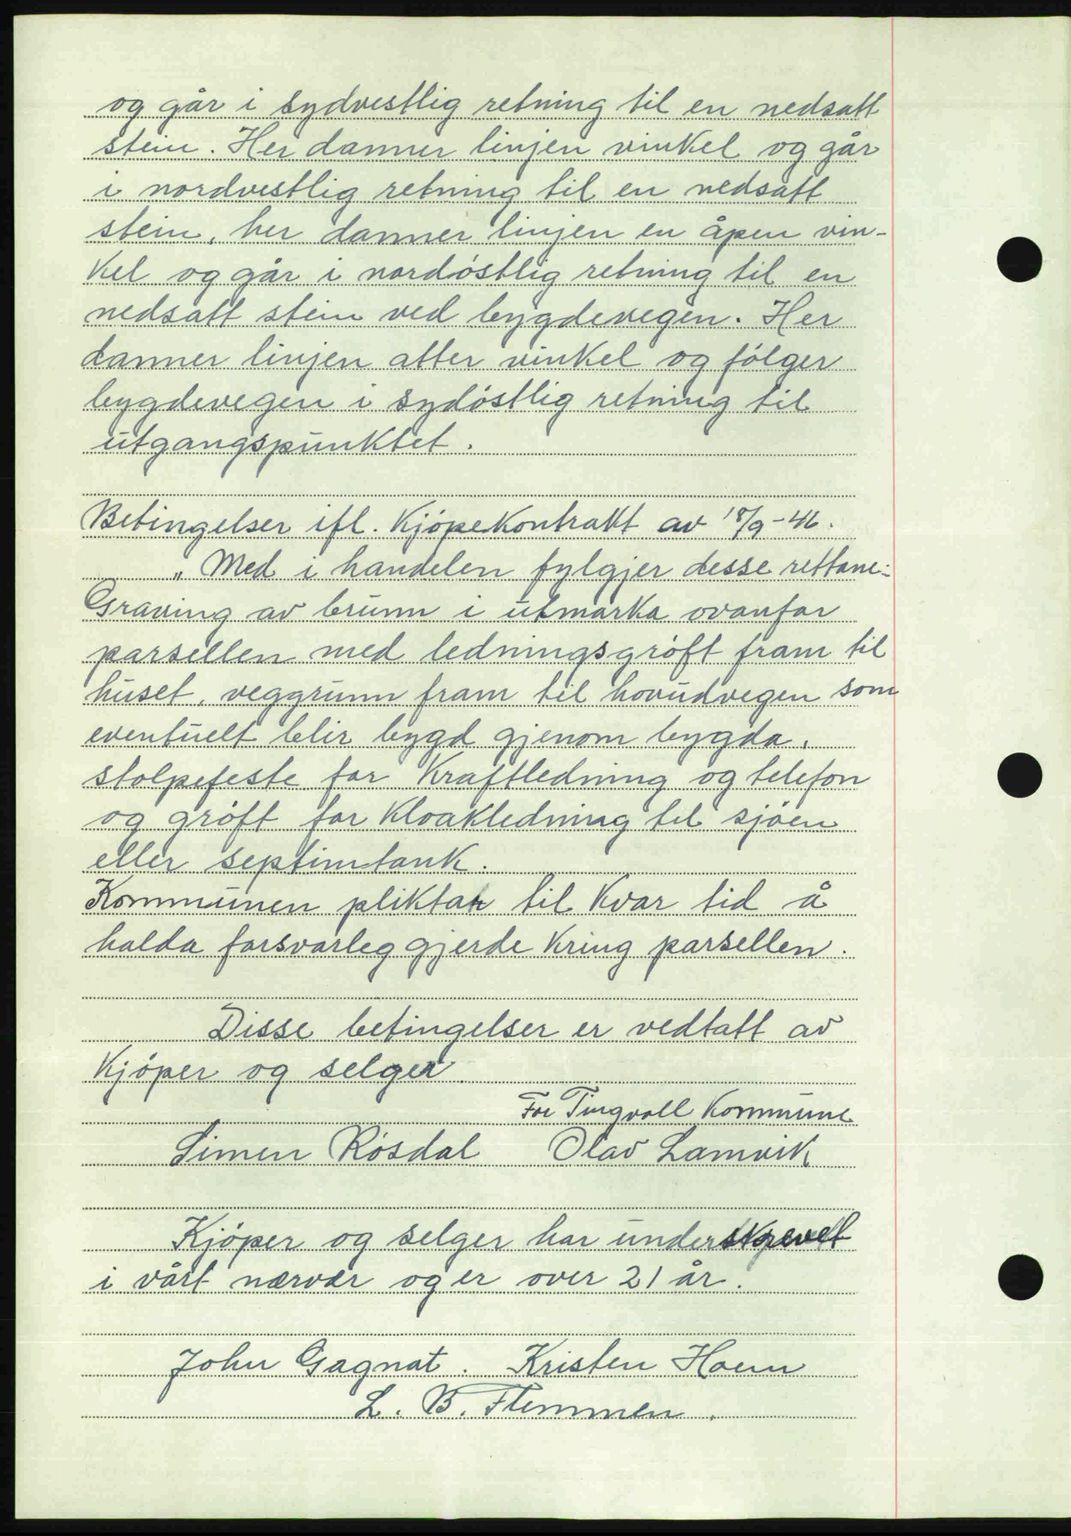 og går i sydvestlig retning til en nedsatt
stein. Her danner linjen vinkel og går
i nordvestlig retning til en nedsatt
stein, her danner linjen en åpen vin-
kel og går i nordøstlig retning til en
nedsatt stein ved bygdevegen. Her
danner linjen atter vinkel og følger
bygdevegen i sydøstlig retning til
utgangspunktet.
Betingelser ifl. Kjøpekontrakt av 18/9-46.
„Med i handelen fylgjer desse rettane:
Graving av brunn i utmarka ovanfor
parsellen med ledningsgrøft fram til
huset, veggrunn fram til hovudvegen som
eventuelt blir bygd gjenom bygda,
stolpefeste for Kraftledning og telefon
og grøft for Kloakledning til sjøen
eller septimtank.
Kommunen pliktar til Kvar tid å
halda forsvarleg gjerde Kring parsellen.
Disse betingelser er vedtatt av
Kjøper og selger.
For Tingvoll Kommune
Simen Røsdal Olav Lamvik
Kjøper og selger har underskrevet
i vårt nærvær og er over 21 år.
John Gagnat. Kristen Hoem
L. B. Flemmen.